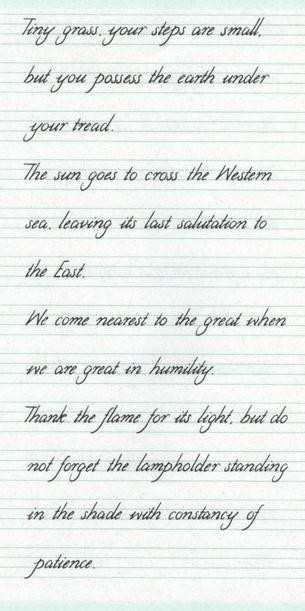 Tiny grass, your steps are small,
but you possess the earth under
your tread.
The sun goes to cross the Western
sea, leaving its last salutation to
the East.
We come nearest to the great when
we are great in humility.
Thank the flame for its light, but do
not forget the lampholder standing
in the shade with constancy of
patience.